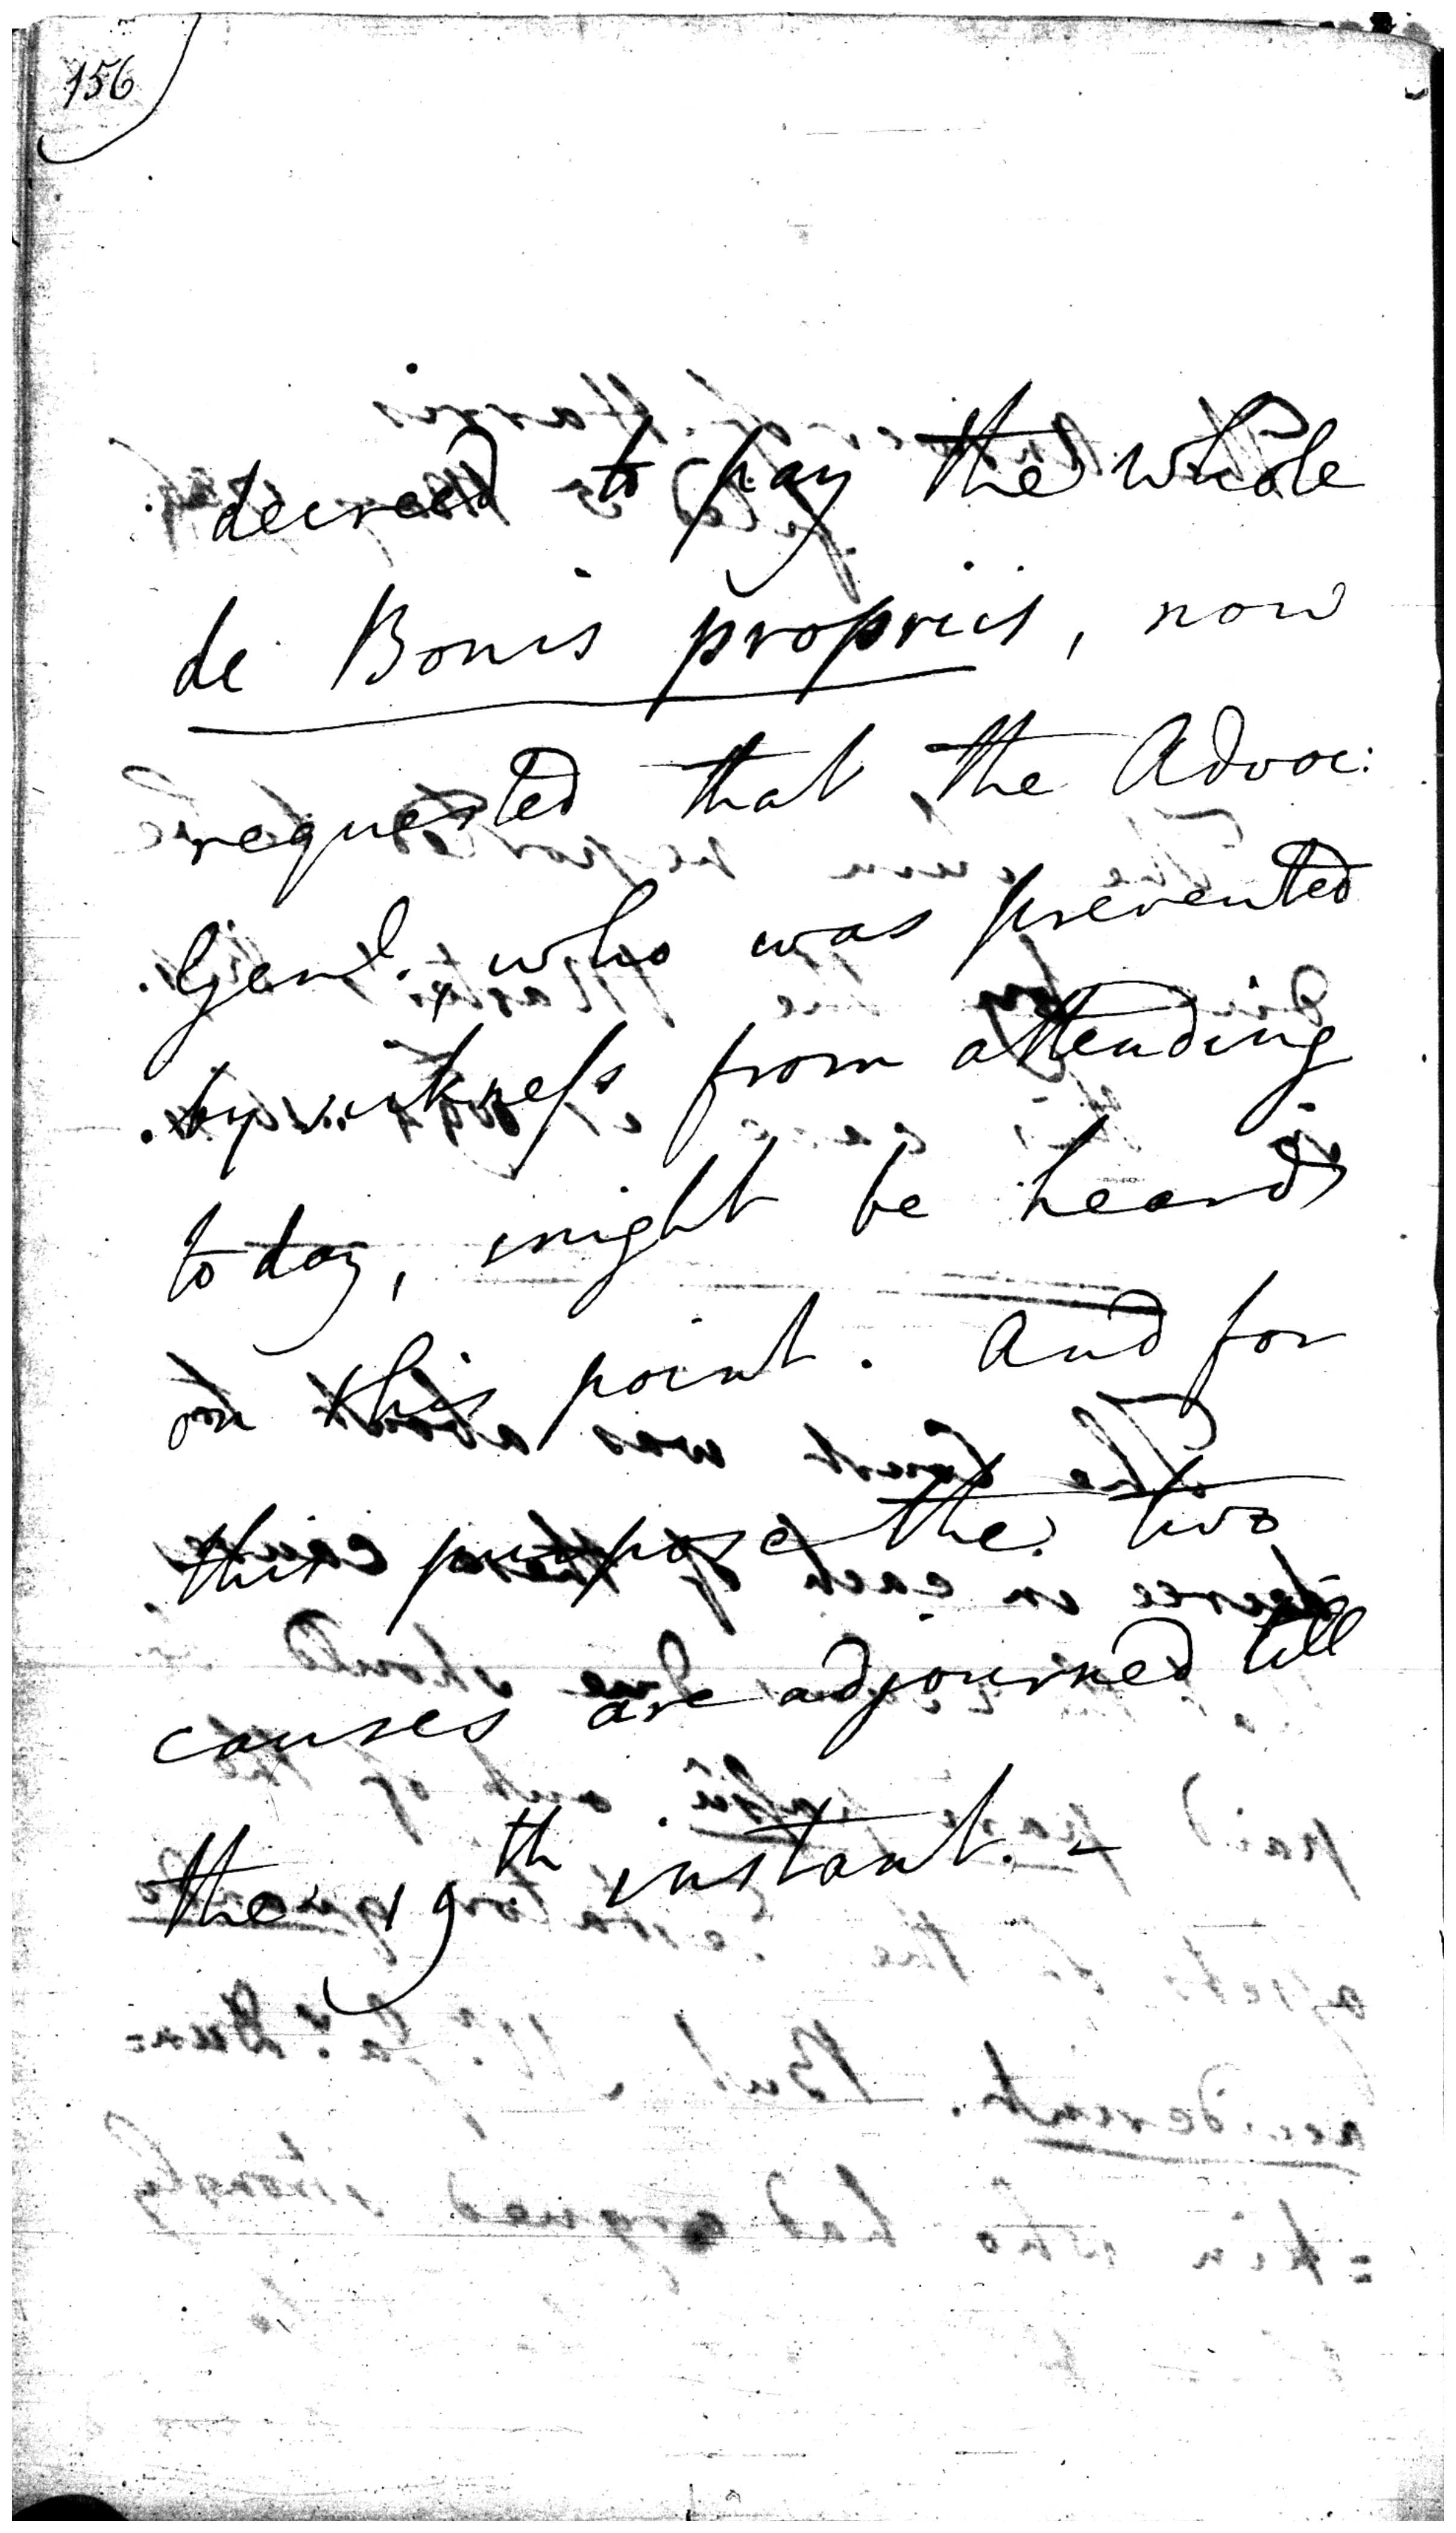 156
decreed to pay the whole
de Bonis propriis, now
requested that the Advoc:
Genl. who was prevented
by sickness from attending
to day, might be heard
on this point. And for
this purpose the two
causes are adjourned till
the 19th instant. -